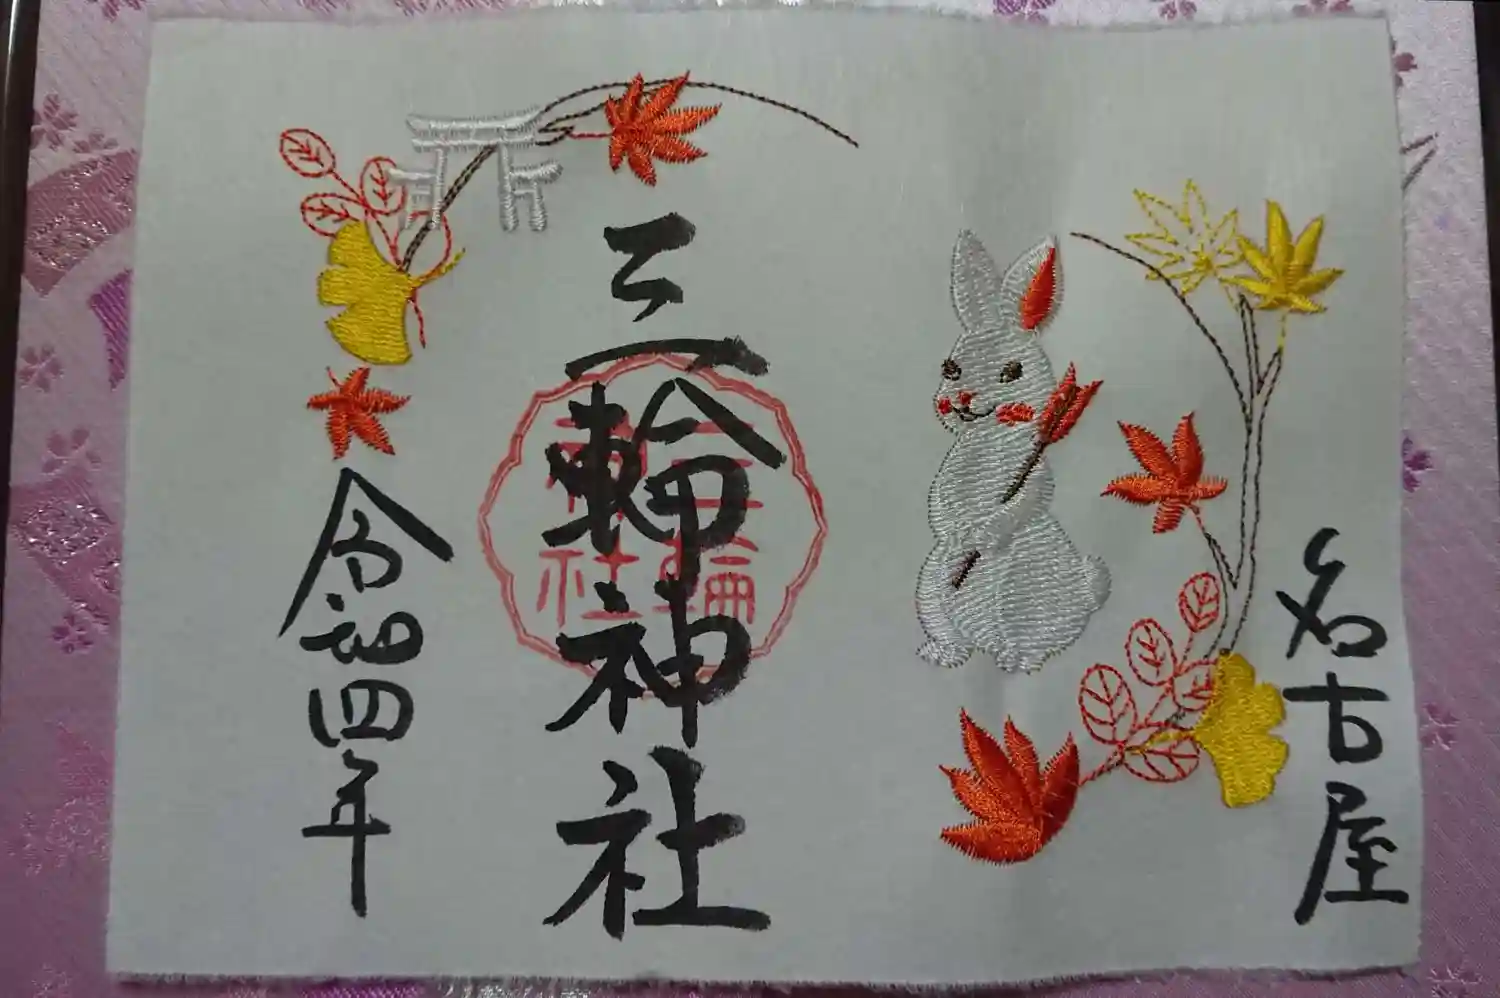 名古屋
三輪神社
三輪
神社
令和四年